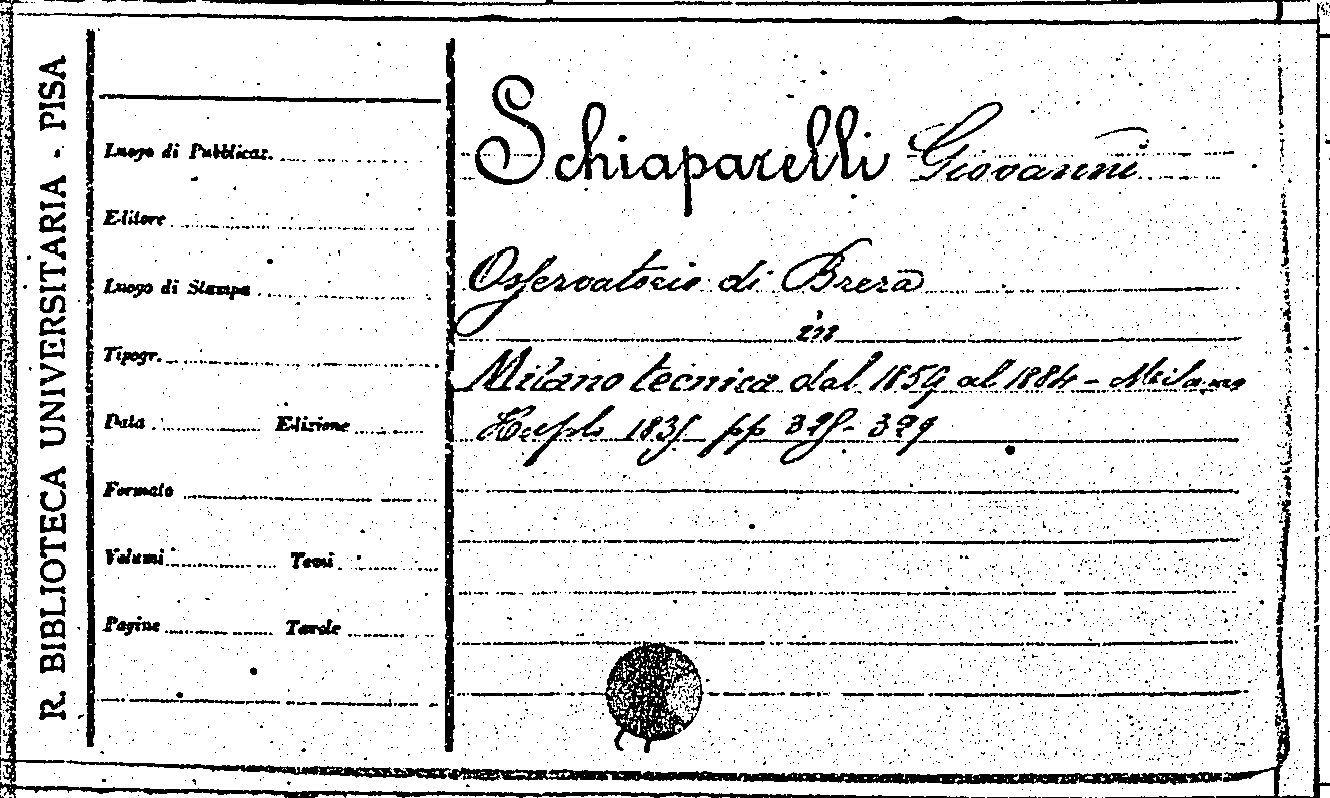 R. BIBLIOTECA UNIVERSITARIA - PISA
Luogo di Pubblicaz.
Editore
Luogo di Stampa
Tipogr.
Data Edizione
Formato
Volumi Tomi
Pagine Tavole
Schiaparelli Giovanni
Osservatorio di Brera
in
Milano tecnica dal 1859 al 1884 - Milano
Hoepli pp